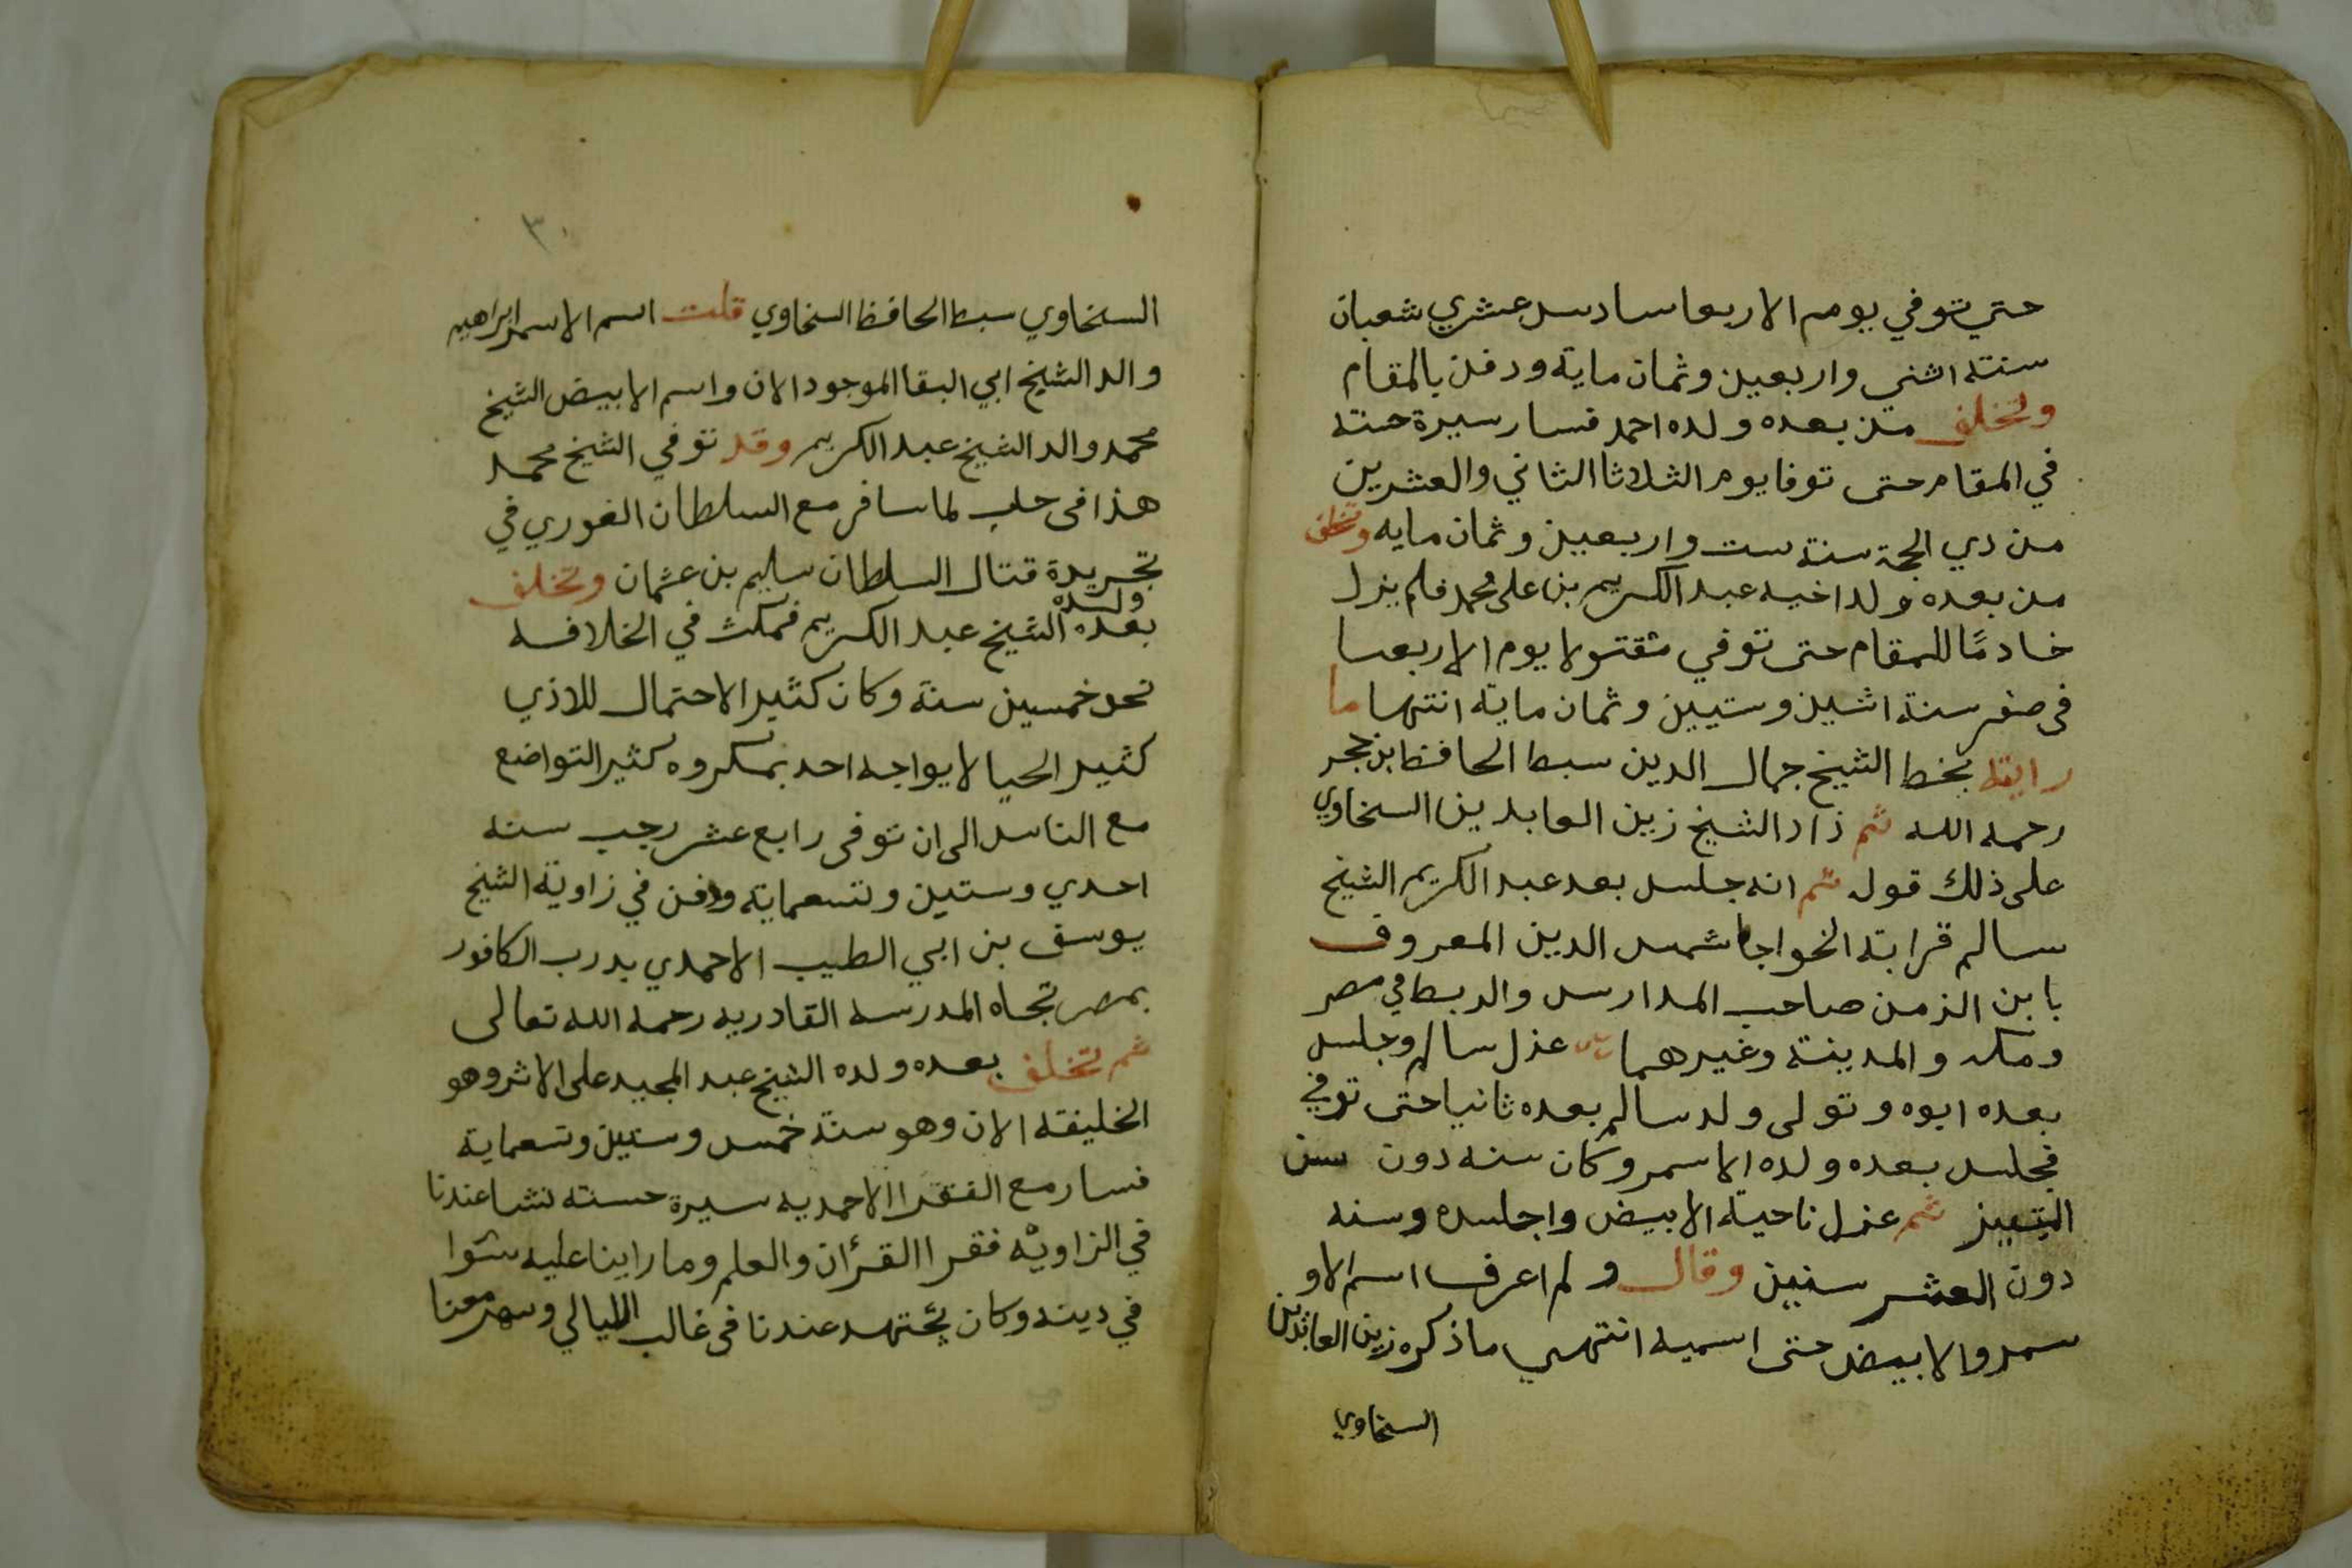 حتي توفي يوم الاربعا سادس عشري شعبان
سنته اثني واربعين وثمان ماية ودفن بالمقام
وتخلف من بعده ولده احمد فسار سيرة حسنة
في المقام حتى توفا يوم الثلاثا الثاني والعشرين
من دي الحجة سنة ست واربعين وثمان مايه وتخلف
من بعده ولد اخيه عبد الكريم بن على محمد فلم يزل
خادمًا للمقام حتى توفي مقتولا يوم الاربعا
فى صفر سنة اثنين وستيين وثمان ماية انتها ما
رايته بخط الشيخ جمال الدين سبط الحافظ ابن حجر
رحمه الله ثم زاد الشيخ زين العابدين السخاوي
على ذلك قوله ثم انه جلس بعد عبد الكريم الشيخ
سالم قرابته الخواجا شمس الدين المعروف
بابن الزمن صاحب المدارس والربط في مصر
ومكه والمدينة وغيرهما عزل سالم وجلس
بعده ابوه وتولى ولد سالم بعده ثانيا حتى توفي
فجلس بعده ولده الاسمر وكان سنه دون سن
التمييز ثم عزل ناحية الابيض واجلسه وسنه
دون العشر سنين وقال ولم اعرف اسم الاو
سمر والابيض حتى اسميه انتهى ما ذكره زين العابدين
السخاوي
٣٠
السخاوي سبط الحافظ السخاوي قلت اسم الاسمر ابراهيم
والد الشيخ ابي البقا الموجود الان واسم الابيض الشيخ
محمد والد الشيخ عبد الكريم وقد توفي الشيخ محمد
هذا فى حلب لما سافر مع السلطان الغوري في
تجريدة قتال السلطان سليم بن عثمان وتخلف
بعده ولده الشيخ عبد الكريم فمكث في الخلافه
نحو خمسين سنة وكان كثير الاحتمال للاذي
كثير الحيا لا يواجه احد بمكروه كثير التواضع
مع الناس الى ان توفى رابع عشر رجب سنه
احدي وستين وتسعماية ودفن في زاوية الشيخ
يوسف بن ابي الطيب الاحمدي بدرب الكافور
بمصر تجاه المدرسه القادريه رحمه الله تعالى
ثم تخلف بعده ولده الشيخ عبد المجيد على الاثر وهو
الخليفة الان وهو سنة خمس وستين وتسعماية
فسار مع الفقرا الاحمديه سيرة حسنه نشا عندنا
في الزاوية فقرا القرآن والعلم وما راينا عليه سوا
في دينه وكان يجتهد عندنا فى غالب الليالي وسهر معنا